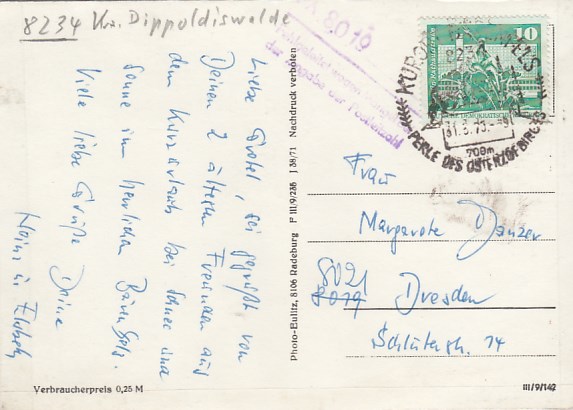 8234 Krs. Dippoldiswalde
8019
der Angabe der Postleitzahl
10
KURORT
8238
31.3.75
700m
PERLE DES OSTERZGEBIRGES
Liebe Gretel, sei gegrüßt von
Deinen 2 älteren Freunden aus
dem Kurzurlaub bei Schnee und
Sonne im herrlichen Bärenfels.
Viele liebe Grüße Deine
Heinz u Elsbeth
Photo-Eulitz, 8106 Radeburg P III/9/285 J 38/71 Nachdruck verboten
Frau
Margarete Danzer
8021
8019 Dresden
Schlüterstr. 14
Verbraucherpreis 0,25 M
III/9/142